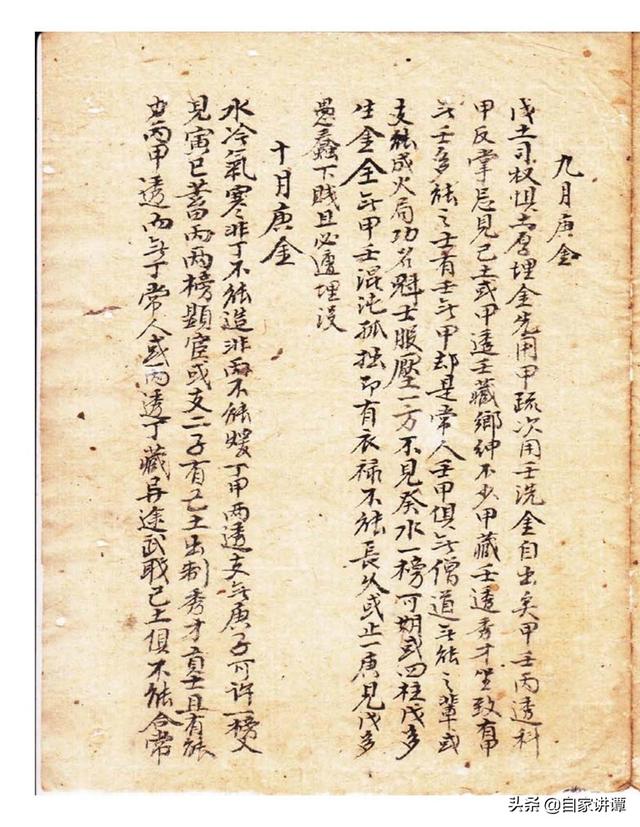 九月庚金
戊土司权惧土厚埋金先用甲疏次用壬洗金自出矣甲壬丙透科
甲反掌忌見己土或甲透壬藏鄉紳不少甲藏壬透秀才坐致有甲
无壬多能之士有壬无甲却是常人壬甲俱无僧道无能之輩或
支能成火局功名魁士服壓一方不見癸水一榜可期或四柱戊多
生金全无甲壬混沌孤拙即有衣禄不能長久或止一庚見戊多
愚蠢下賤且必遭埋没
十月庚金
水冷氣寒非丁不能造非丙不能煖丁甲两透支无庚子可許一榜又
見寅巳蓄丙两榜顯宦或支二子有己土出制秀才貢士且有能
丙甲透而无丁常人或丙透丁藏异途武職己土俱不能合常
头条 @自家讲谭